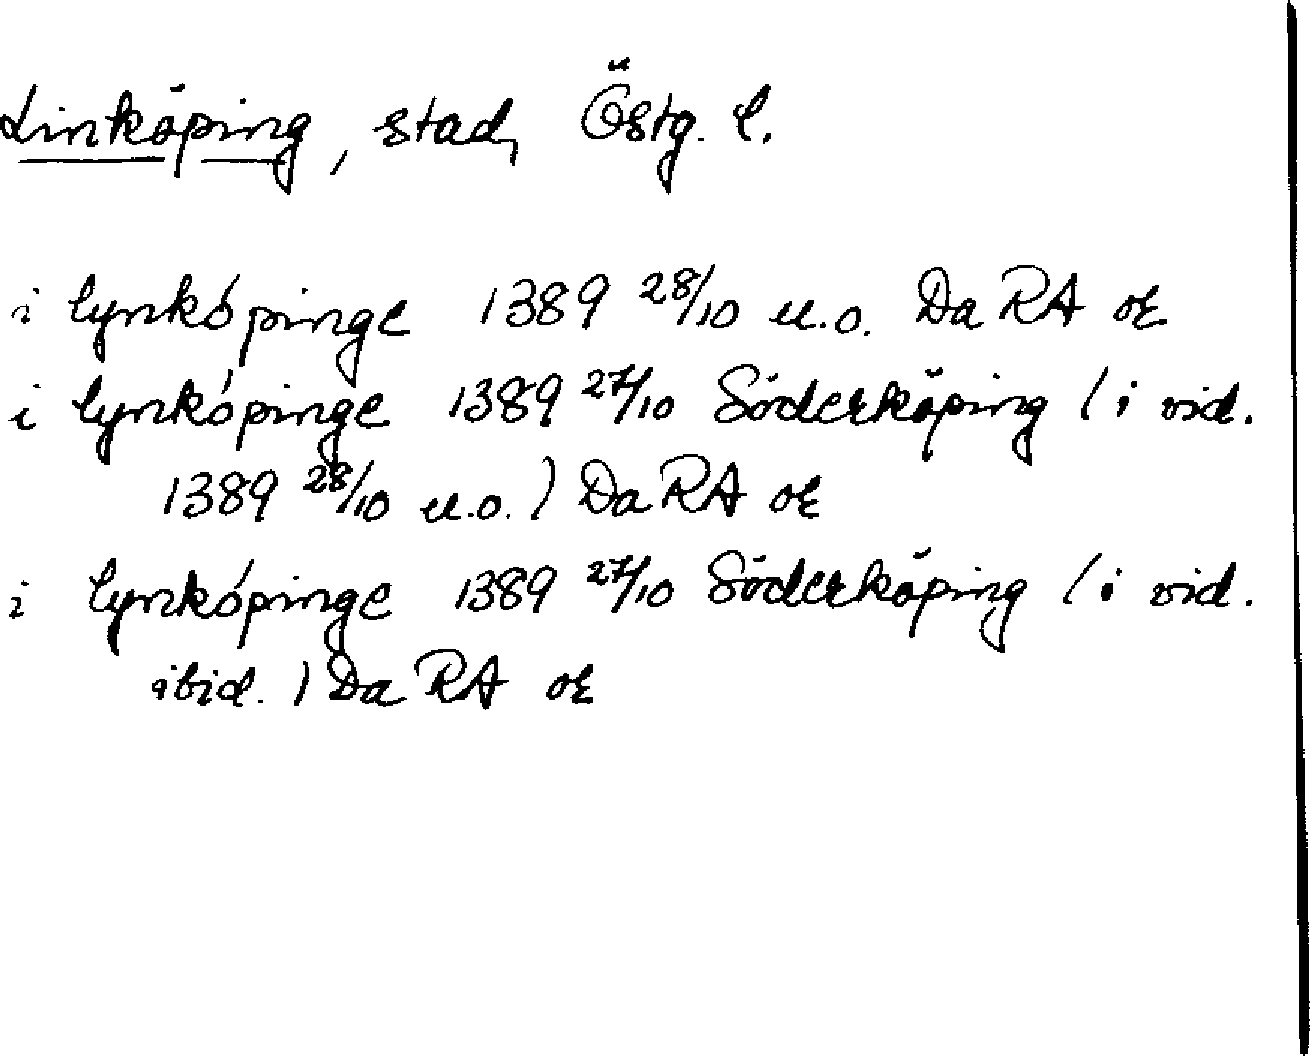 Linköping, stad, Östg. l.
i lynkópinge 1389 28/10 u.o. Da RA or
i lynkópinge 1389 27/10 Söderköping (i vid.
1389 28/10 u.o.) Da RA or
i lynkópinge 1389 27/10 Söderköping (i vid.
ibid.) Da RA or